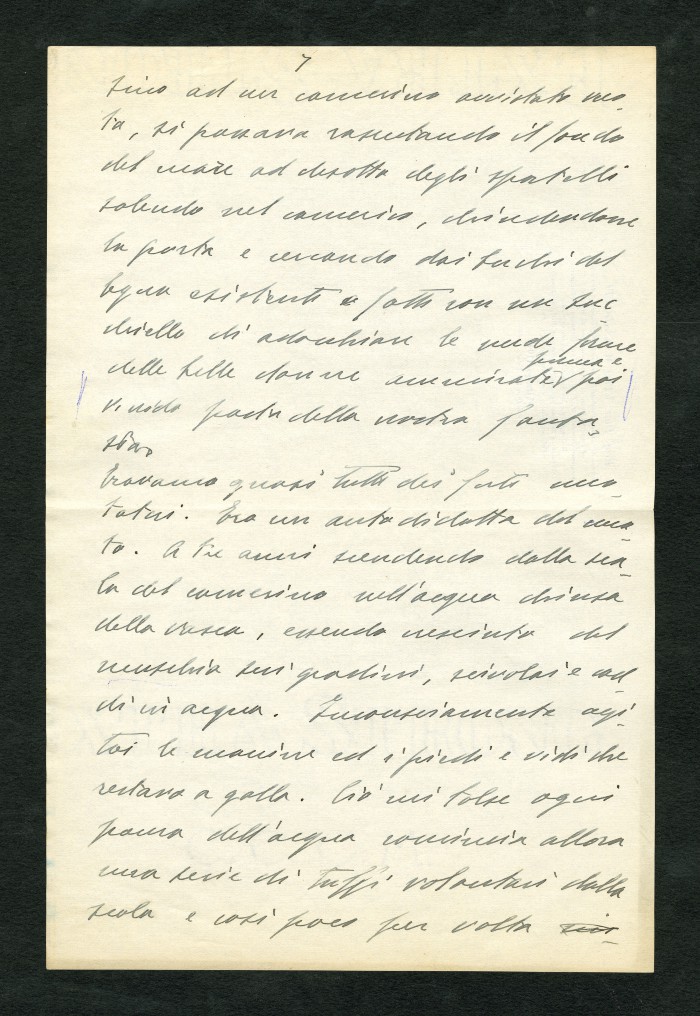 7
sino ad un camerino avvistato vuo-
to, si passava rasentando il fondo
del mare ad disotto degli sportelli
salendo nel camerino, chiudendone
la porta e cercando dai buchi del
legno esistenti o fatti con un suc
chiello di adocchiare le nude forme
delle belle donne ammirate prima e poi
vivido pasto della nostra fanta-
sia.
Eravamo quasi tutti dei forti nuo-
tatori. Ero un autodidatta del nuo-
to. A tre anni scendendo dalla sca-
la del camerino nell'acqua chiusa
della vasca, essendo cresciuto del
muschio sui gradini, scivolai e cad-
di in acqua. Inconsciamente agi-
tai le manine ed i piedi e vidi che
restavo a galla. Ciò mi tolse ogni
paura dell'acqua cominciai allora
una serie di tuffi volontari dalla
scala e così poco per volta